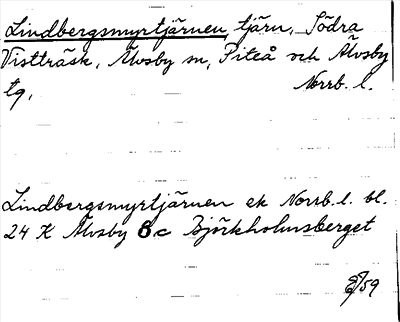 Lindbergsmyrtjärnen, tjärn, Södra
Vistträsk, Älvsby sn, Piteå och Älvsby
tg, Norrb. l.
Lindbergsmyrtjärnen ek Norrb. l. bl.
24 K Älvsby 8c Björkholmsberget
/59